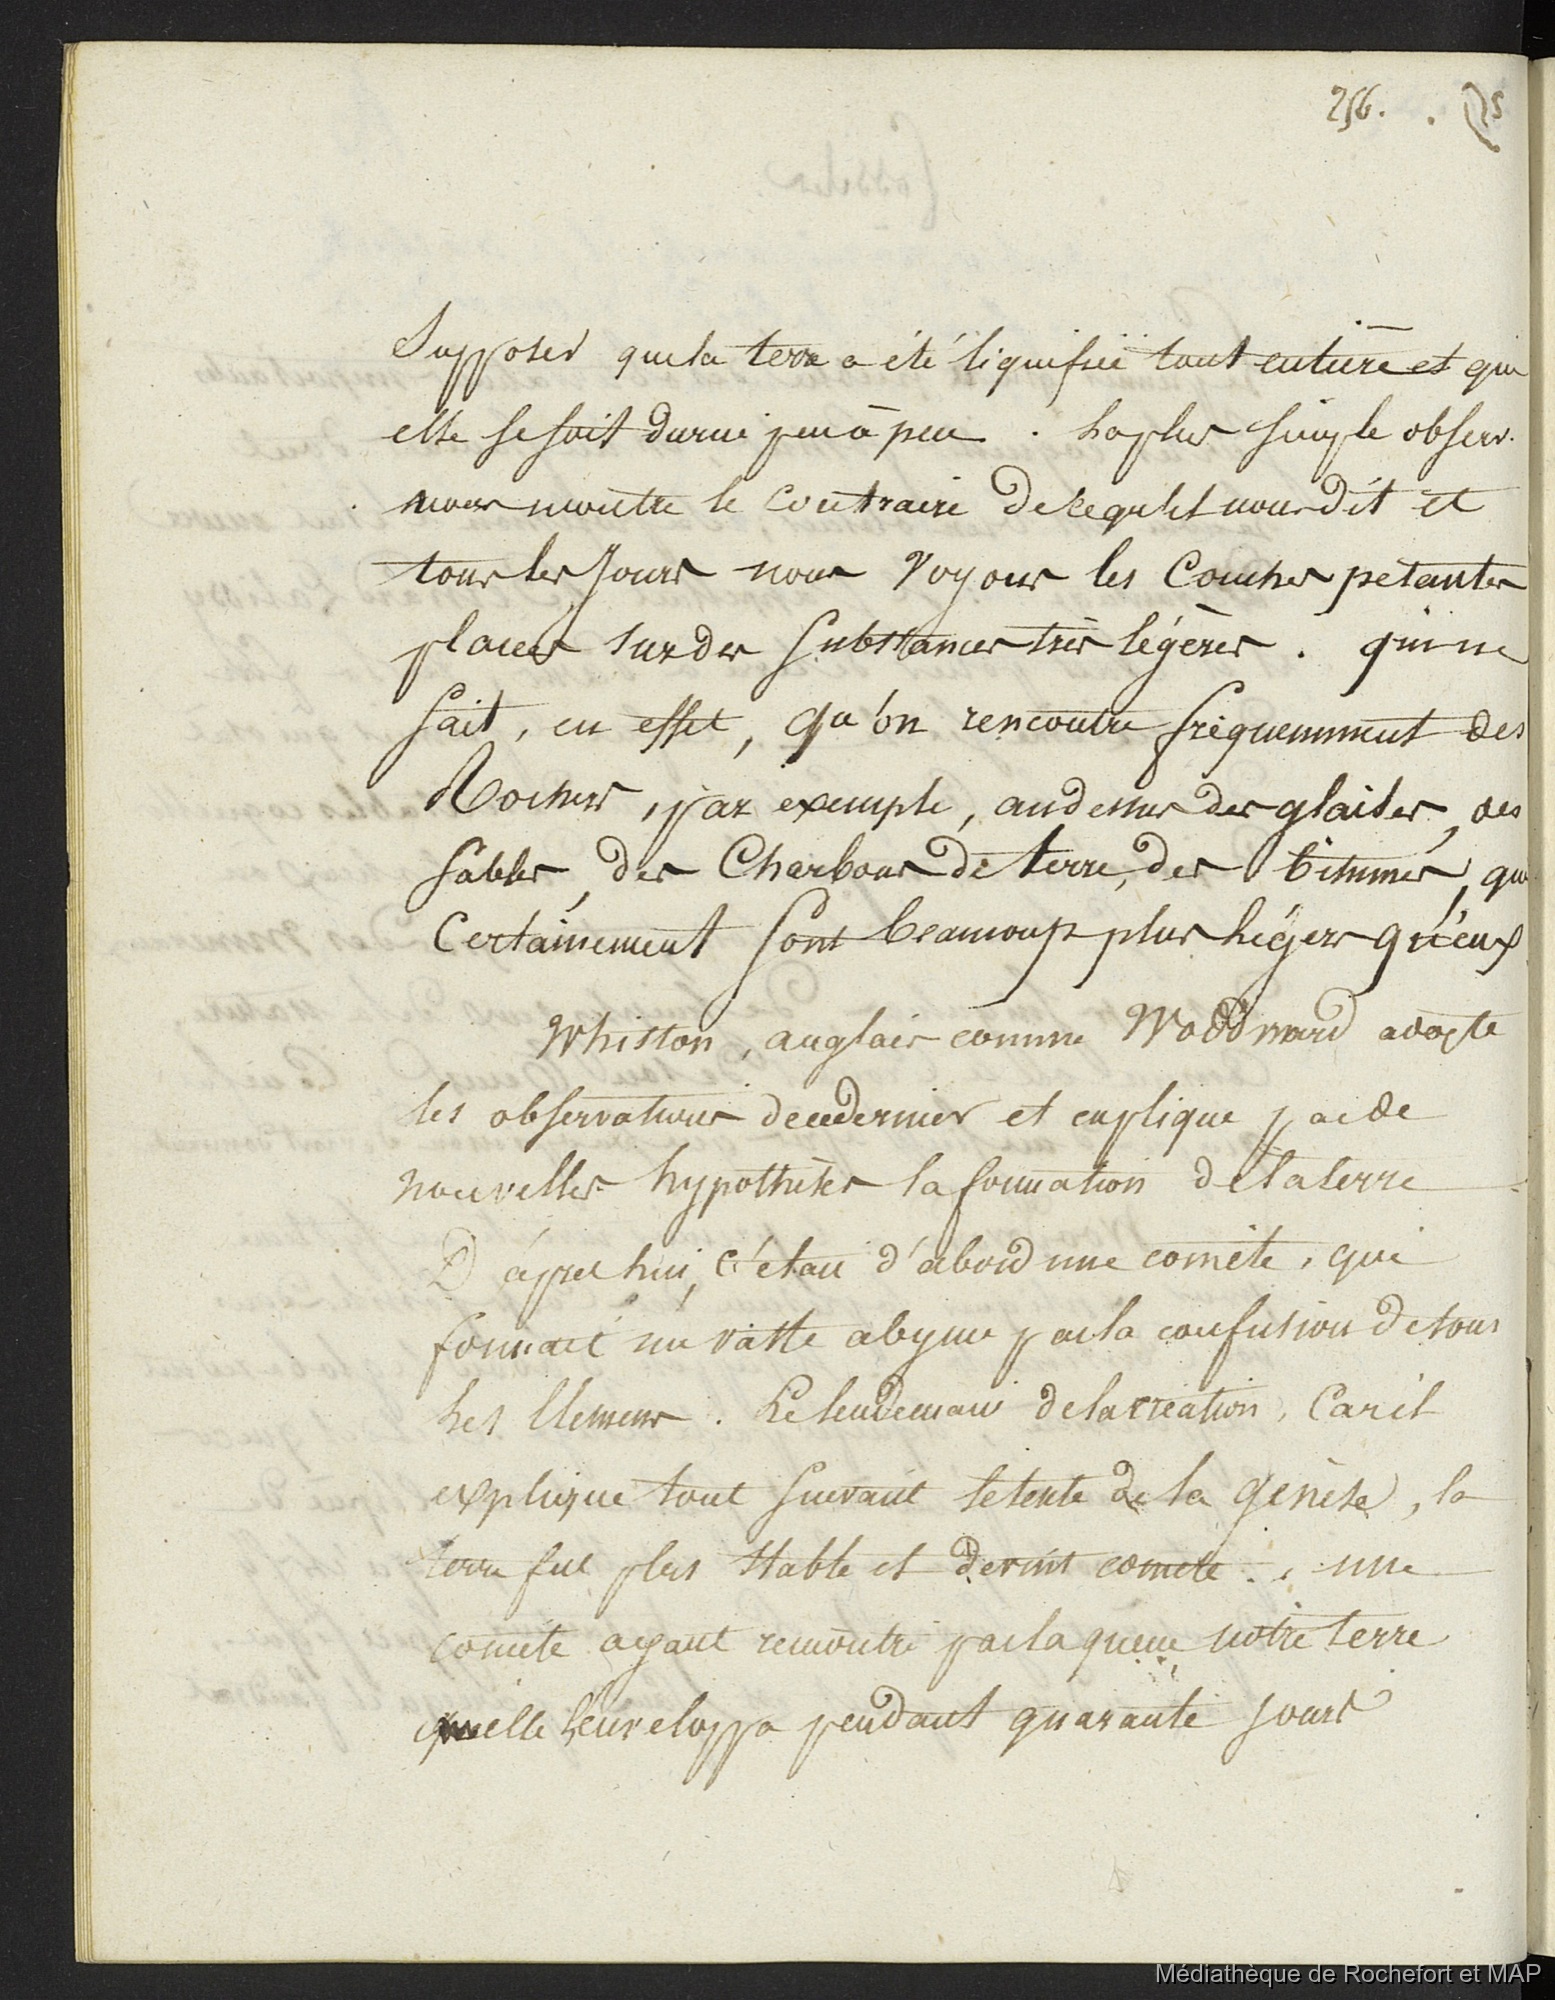 256.
Supposer que la terre a été liquifiée tout entière et qu'
elle se soit durcie peu à peu. La plus simple observ.
nous montre le contraire de ce qu'il nous dit et
tous les jours nous voyons les couches pesantes
placées sur des substances très légères. qui ne
sait, en effet, qu'on rencontre fréquemment des
Rochers, par exemple, au dessus des glaises, des
sables, des Charbons de terre, des bitumes, qui
Certainement sont beaucoup plus légers qu'eux
Whiston, anglais comme Woodward adopte
les observations de ce dernier et explique par de
nouvelles hypothèses la formation de la terre.
D'après lui, c'était d'abord une comète, qui
formait un vaste abyme par la confusion de tous
les Elemens. Le lendemain de la création, Car il
explique tout suivant le texte de la genèse, la
terre fut plus stable et devint comète. une
comète ayant rencontré par la queue notre terre
qu'elle enveloppa pendant quarante jours
Médiathèque de Rochefort et MAP